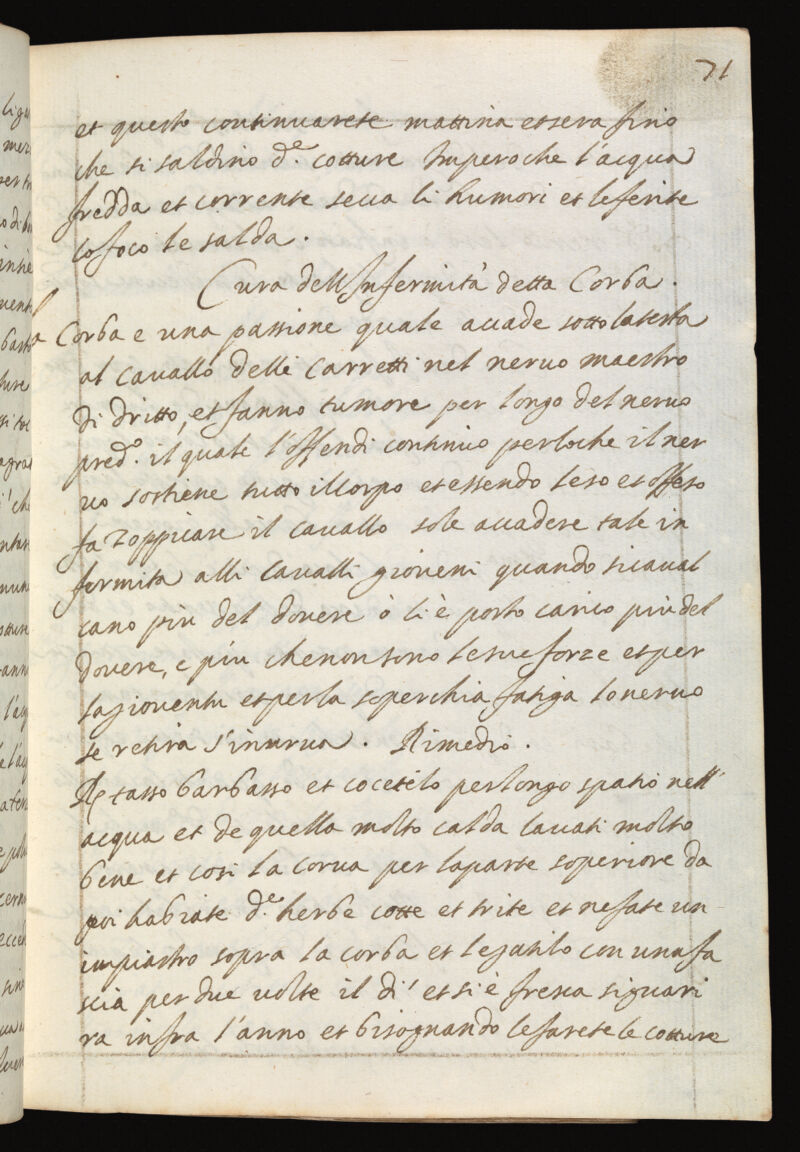 71
et questo continuarete mattina et sera fino
che si saldino d.e cotture Imperoche l'acqua
fredda et corrente secca li humori et le ferite
co foco le salda.
Cura dell Infermità detta Corba.
la Corba e una passione quale accade sotto la testa
al cavallo delli Carretti nel neruo maestro
di dritto, et fanno tumore per longo del neruo
pred.o il quale l'offendi continuo perloche il ner
uo sostiene tutto il Corpo et essendo leso et offeso
fa zoppicare il cauallo sole accadere tale in
fermita alli Caualli gioueni quando si caual
cano più del douere ò li è posto carico più del
douere, e più che non sono le sue forze et per
la giouentu et per la soperchia fatiga lo neruo
se retira s'incurua. Rimedio.
℞ tasso barbasso et cocetelo per longo spatio nell'
acqua et de quella molto calda lauati molto
bene et cosi la corua per la parte soperiore da
poi habiate d.e herbe cotte et trite et ne fate un
impiastro sopra la corba et legatilo con una fa
scia per due uolte il di' et si è fresca si guari
ra infra l'anno et bisognando le farete le cotture